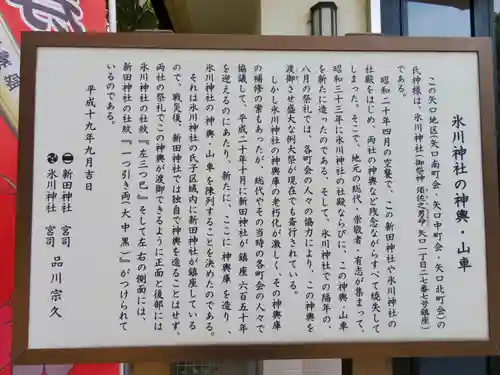 氷川神社の神輿・山車
この矢口地区(矢口南町会・矢口中町会・矢口北町会)の
氏神様は、氷川神社(御祭神 須佐之男命 矢口一丁目二七番七号鎮座)
である。
昭和二十年四月の空襲で、この新田神社や氷川神社の
社殿をはじめ、両社の神輿など残念ながらすべて焼失して
しまった。そこで、地元の総代、崇敬者・有志が集まって、
昭和三十三年に氷川神社の社殿ならびに、この神輿、山車
を新たに造ったのである。そして、氷川神社での隔年の、
八月の祭礼では、各町会の人々の協力により、この神輿を
渡御させ盛大な例大祭が現在でも斎行されている。
しかし氷川神社の神輿庫の老朽化が激しく、その神輿庫
の補修の案もあったが、総代やその当時の各町会の人々で
協議して、平成二十年十月に新田神社が鎮座六百五十年
を迎えるのにあたり、新たに、ここに神輿庫を造り、
氷川神社の神輿、山車を陳列することを決めたのである。
それは氷川神社の氏子区域内に新田神社が鎮座している
ので、戦災後、新田神社では独自で神輿を造ることはせず、
両社の祭礼でこの神輿が渡御できるように正面と後部には
氷川神社の社紋『左三つ巴』そして左右の側面には、
新田神社の社紋『一つ引き両(大中黒)』がつけられて
いるのである。
平成十九年九月吉日
新田神社 宮司
氷川神社 宮司 品川宗久